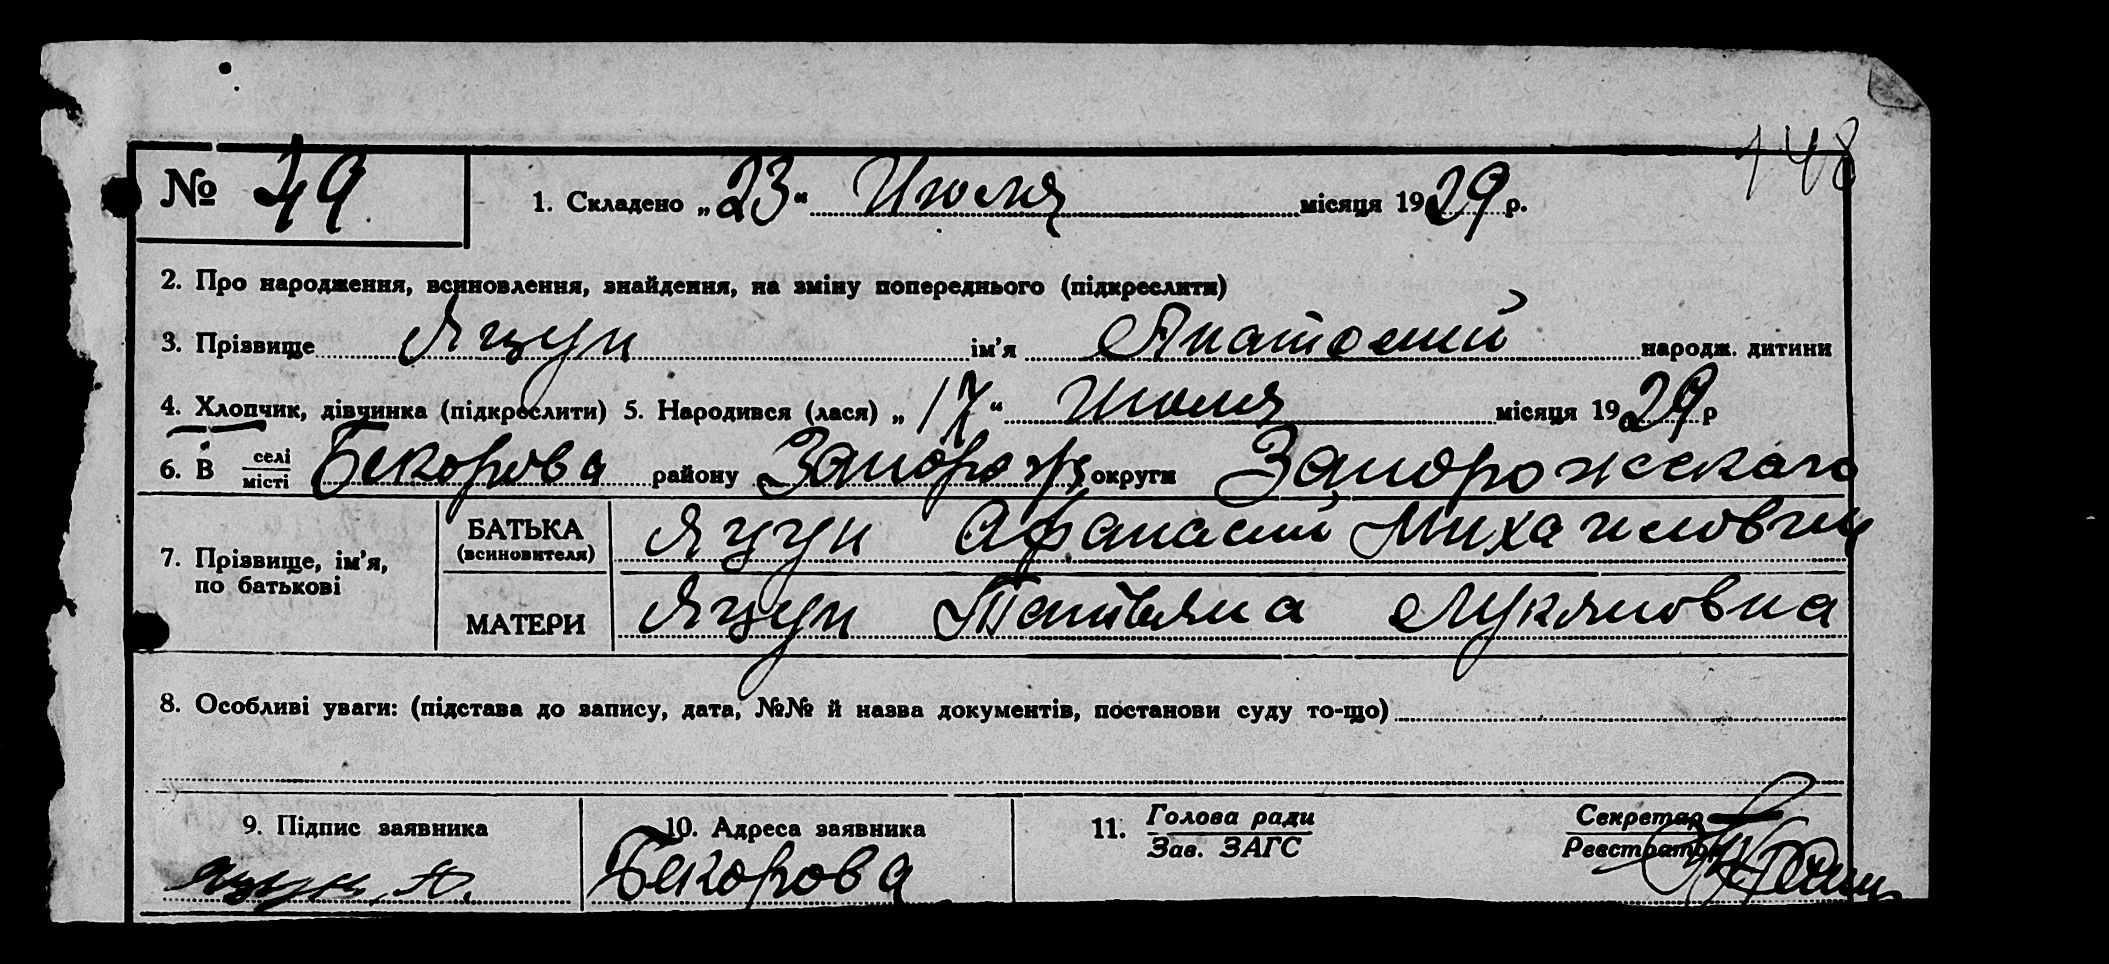 148
№ 49 1. Складено „23“ Июля місяця 1929 р.
2. Про народження, всиновлення, знайдення, на зміну попереднього (підкреслити)
3. Прізвище Яцун ім’я Анатолий народж. дитини
4. Хлопчик, дівчинка (підкреслити) 5. Народився (лася) „17“ Июля місяця 1929 р
6. В селі місті Бекорова району Запорож округи Запорожскаго
7. Прізвище, ім’я, по батькові
БАТЬКА (всиновителя) Яцун Афанасий Михайлович
МАТЕРИ Яцун Татьяна Лукяновна
8. Особливі уваги: (підстава до запису, дата, №№ й назва документів, постанови суду то-що)
9. Підпис заявника 10. Адреса заявника 11. Голова ради Секретар
Зав. ЗАГС Реєстратор
Яцун А. Бекорова